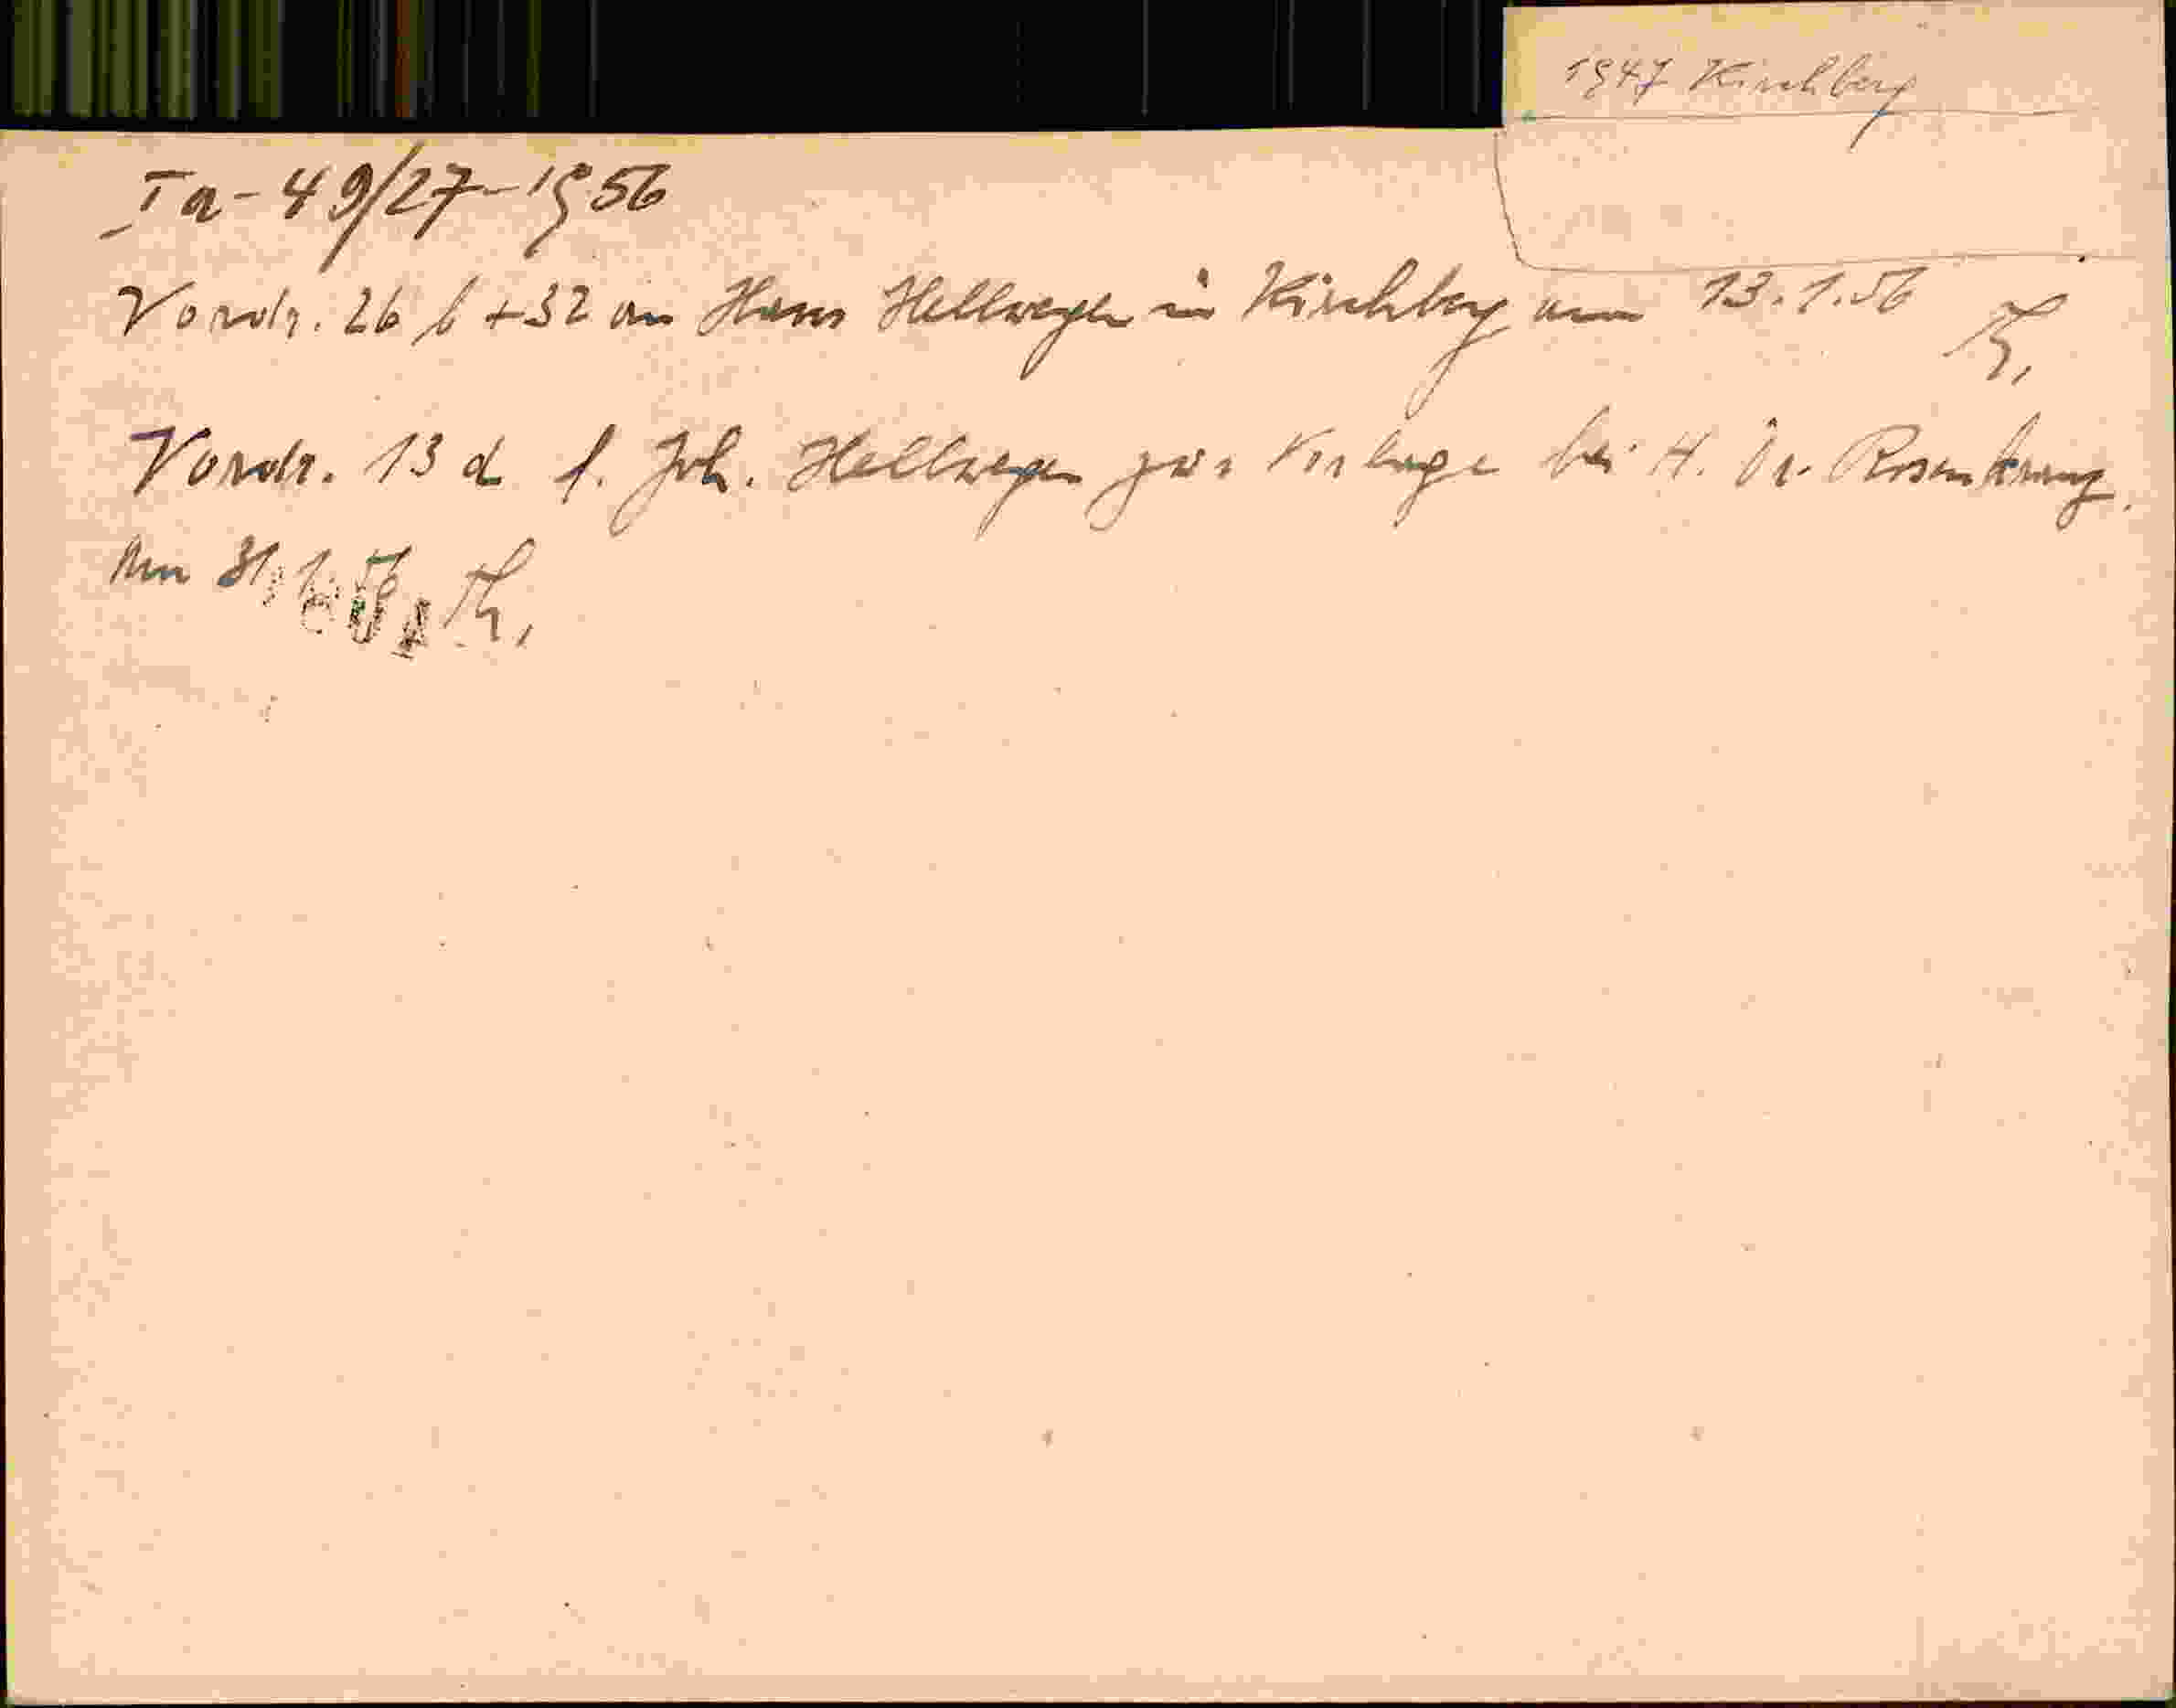 1947 Kirchberg
Ia-49/27-1956
Vordr. 26 b +32 an Hans Hellwegen in Kirchberg am 13.1.56 Th.
Vordr. 13 d f. Joh. Hellwegen zur Vorlage bei H. Dr. Rosenkranz.
Am 31.1.56 Th.